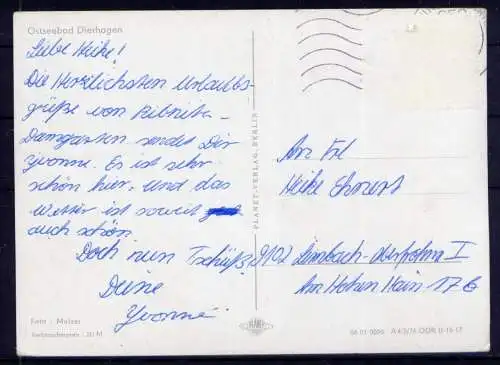 Ostseebad Dierhagen
Liebe Heike!
Die Herzlichsten Urlaubs-
grüße von Ribnitz-
Damgarten sendet Dir
Yvonne. Es ist sehr
schön hier, und das
Wetter ist soweit
auch schön
Doch nun Tschüß,
Deine
Yvonne
Foto: Melzer
PLANET-VERLAG BERLIN
An Frl
Heike Ehnert
9102 Limbach-Oberfrohna I
Am Hohen Hain 17 G
PLANET
06 01 0090 A 4/5/76 DDR II-16-17